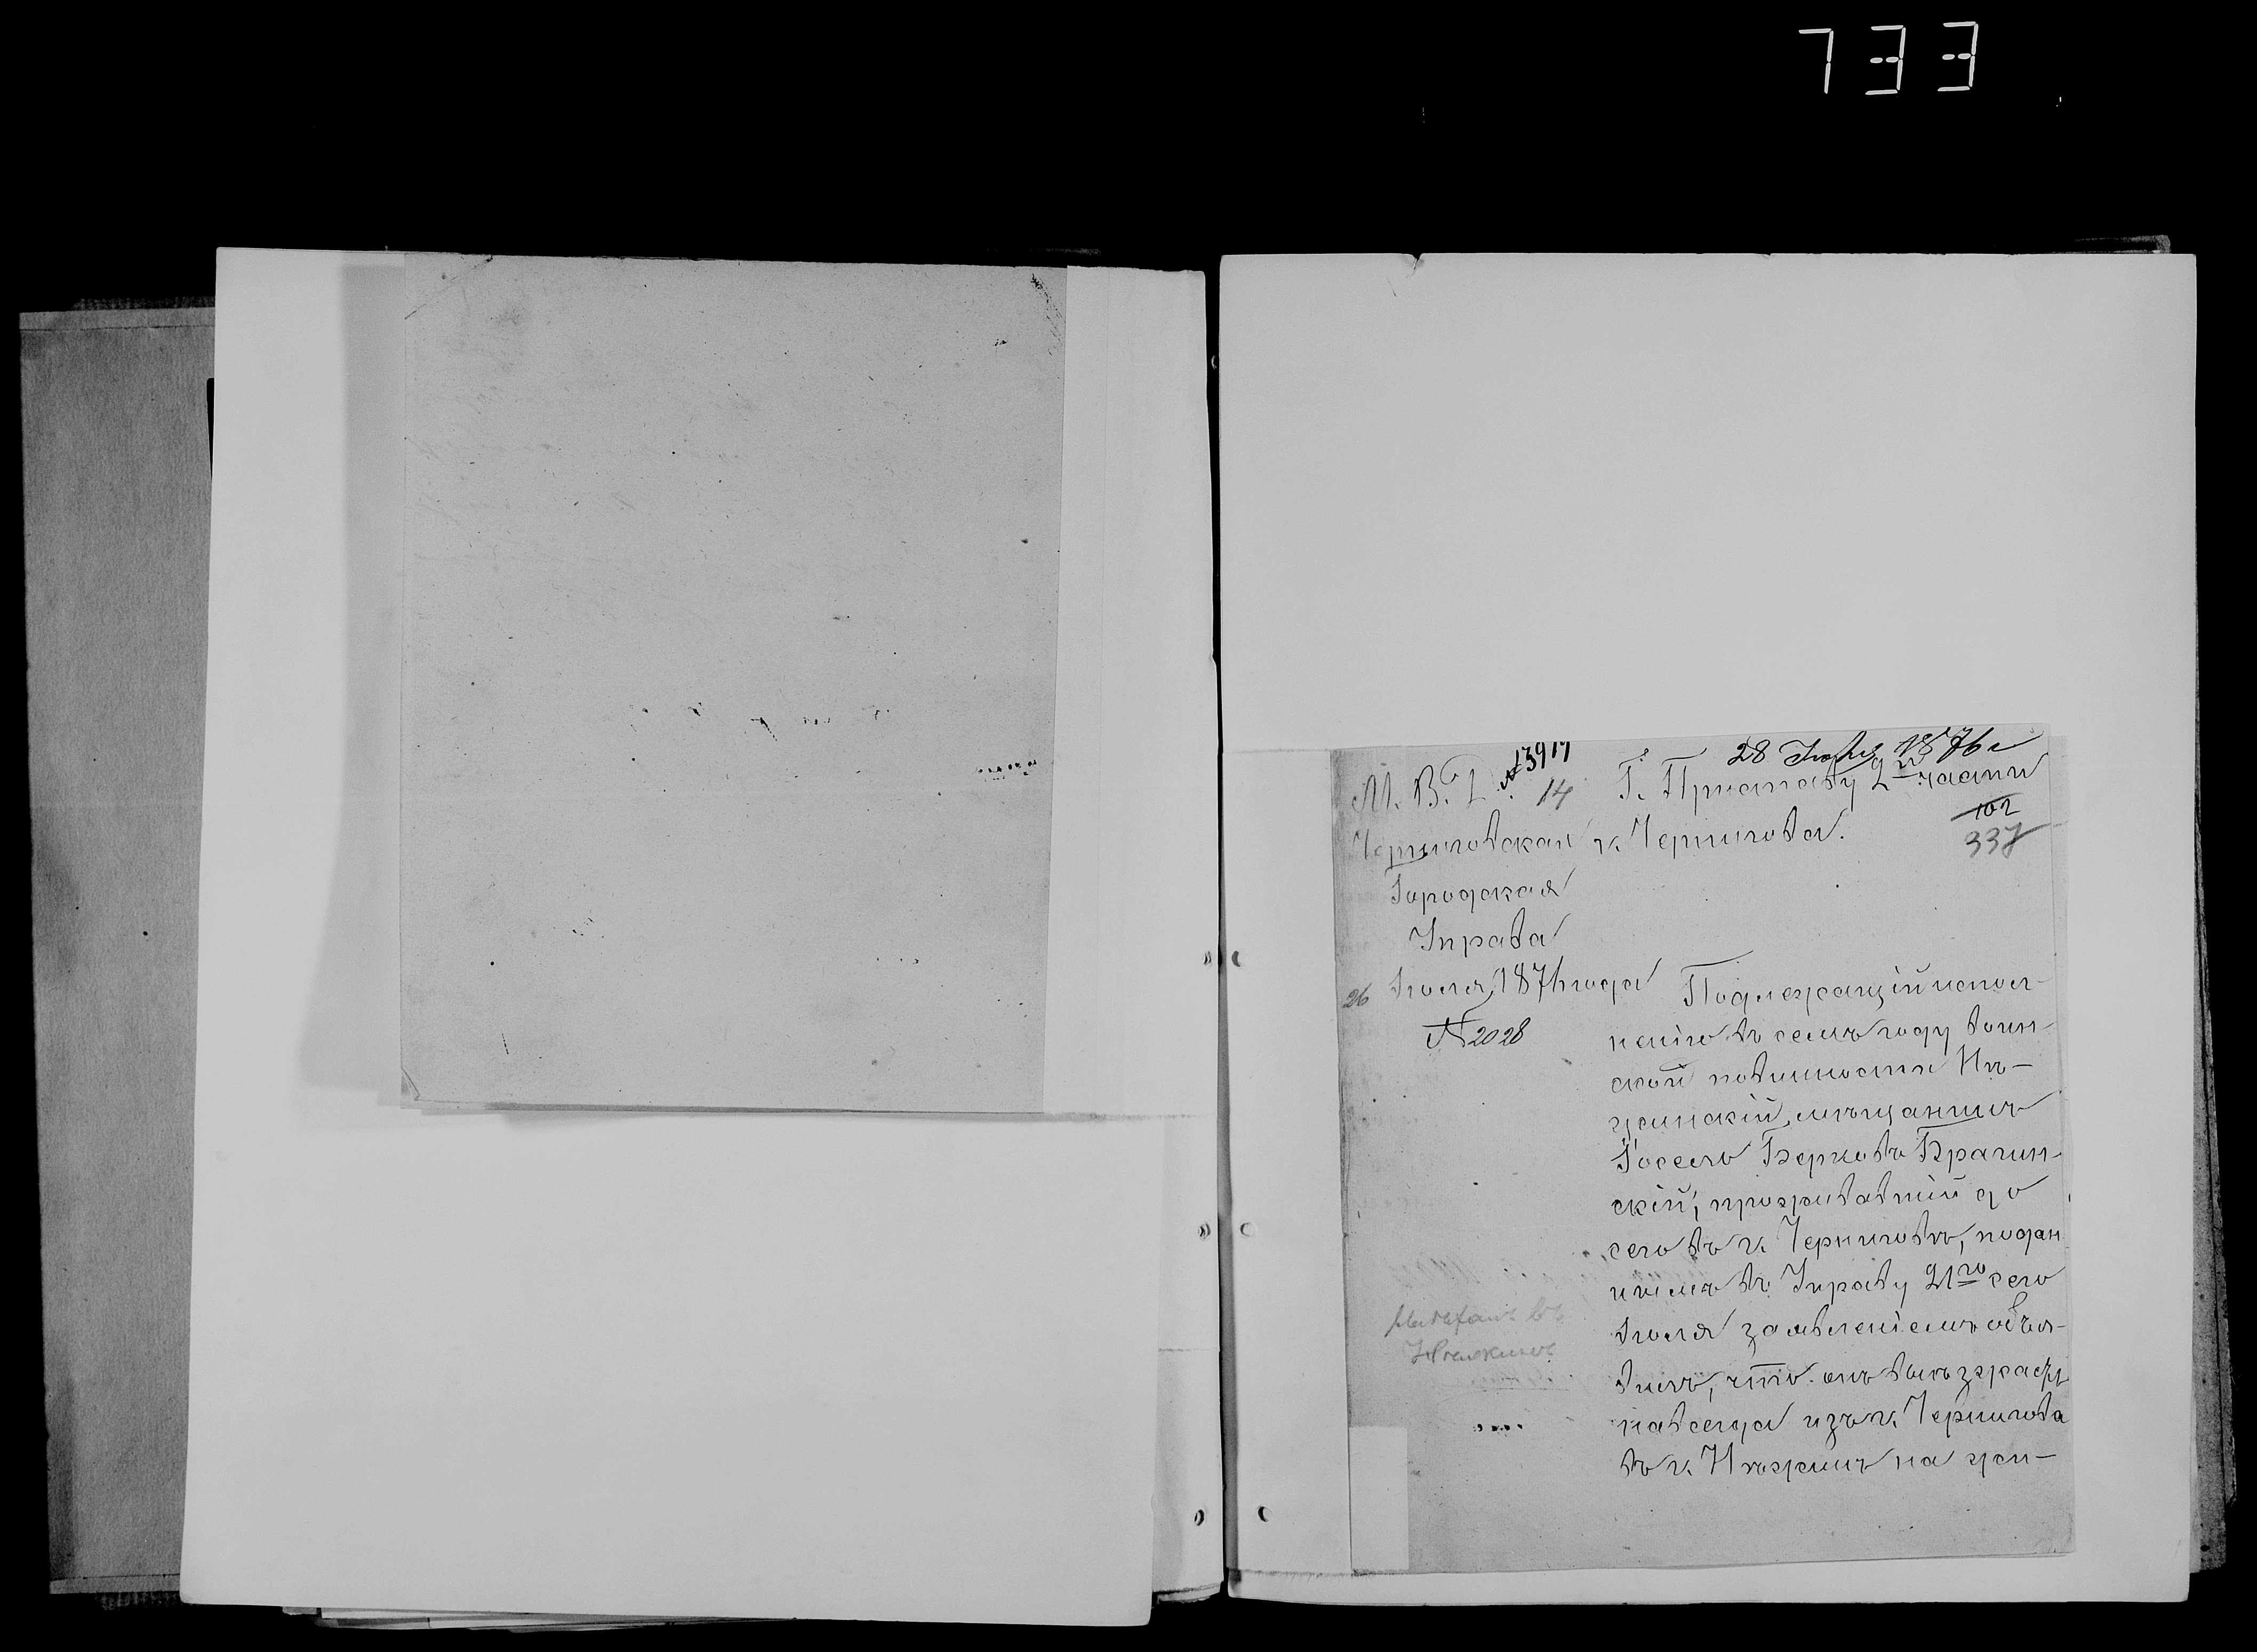 733
28 Июля 1876 г
№ 3917
М. В. Д. 14
Г. Приставу 2й части
г. Чернигова.
102
337
Черниговская
Городская
Управа
26 Июля 1876 года
№ 2028
Подлежащій испол-
ненію въ семъ году воин-
ской повинности Нѣ-
жинскій мѣщанинъ
Іосель Берковъ Брагин-
скій, проживавшій до
сего въ г. Черниговѣ, подан-
нымъ въ Управу 21го сего
Июля заявленіемъ объя-
вилъ, что онъ выѣзжаетъ
навсегда изъ г. Чернигова
въ г. Нѣжинъ на жи-